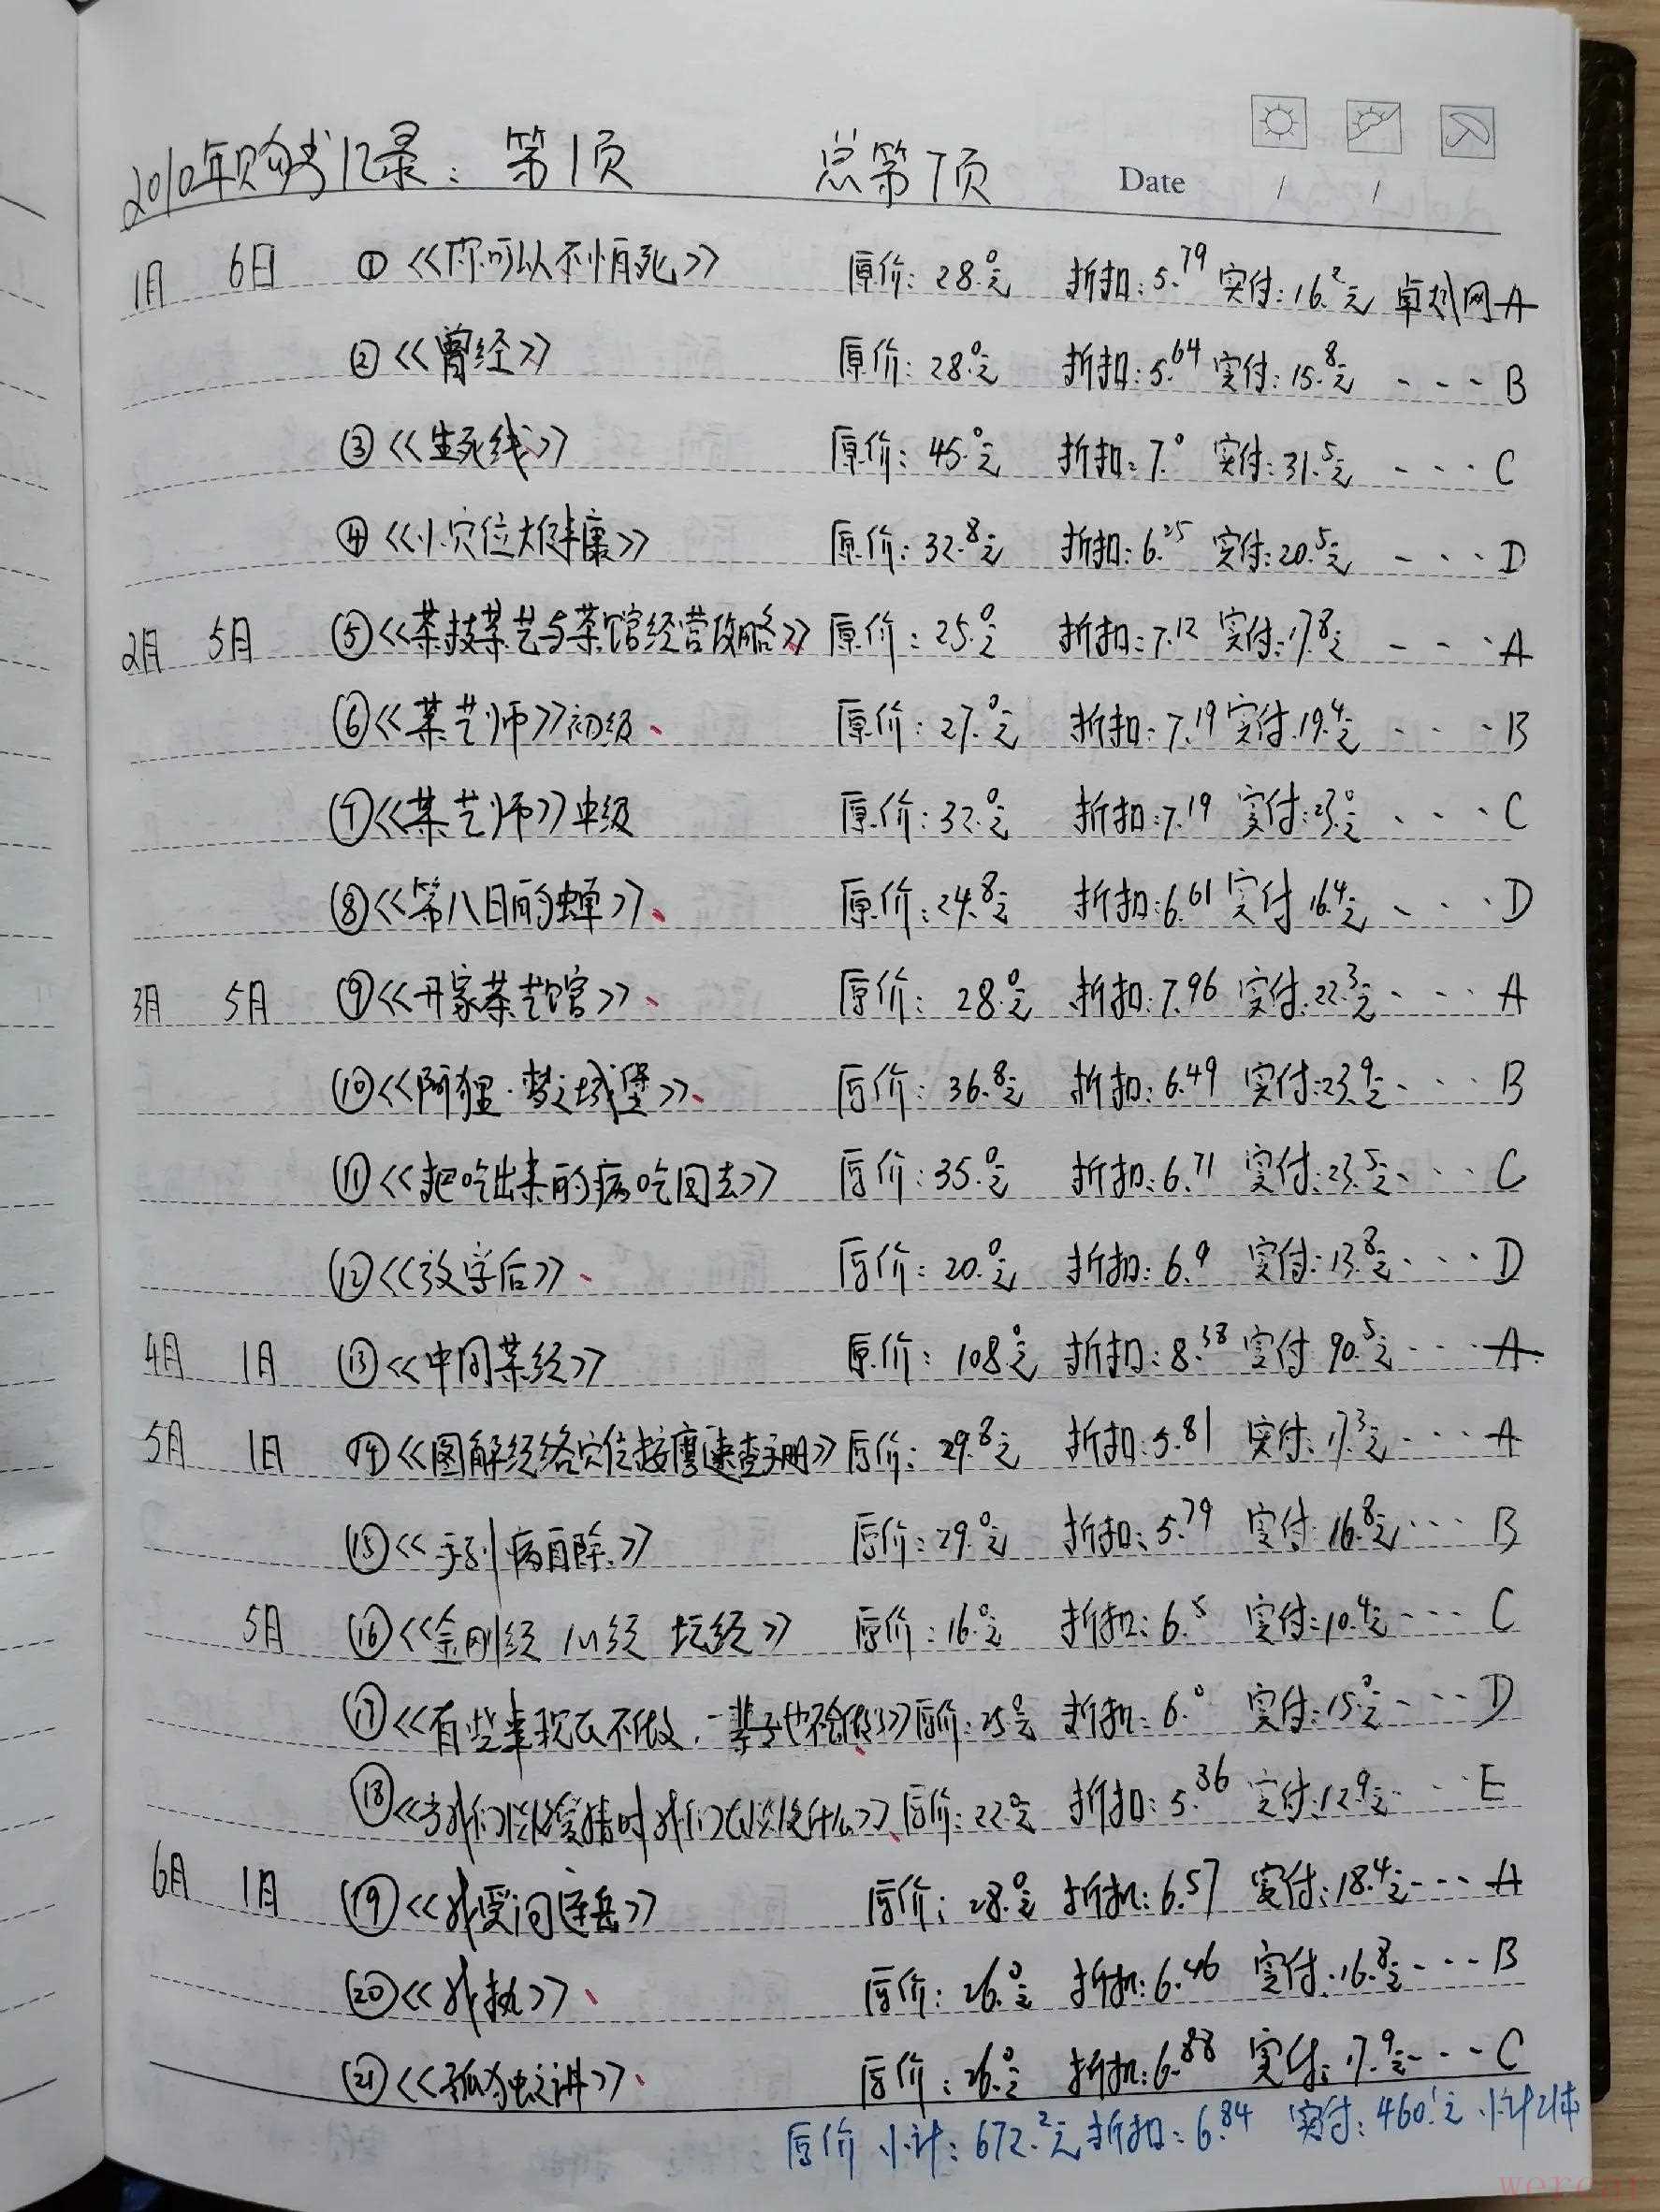 2010年购书记录：第1页 总第7页 Date / /
1月 6日 ①《你可以不怕死》 原价：28.0元 折扣：5.79 实付：16.2元 卓越网A
②《曾经》 原价：28.0元 折扣：5.64 实付：15.8元 ---B
③《生死线》 原价：45.0元 折扣：7.0 实付：31.5元 ---C
④《小穴位大健康》 原价：32.8元 折扣：6.25 实付：20.5元 ---D
2月 5日 ⑤《茶技茶艺与茶馆经营攻略》 原价：25.0元 折扣：7.12 实付：17.8元 ---A
⑥《茶艺师》初级、 原价：27.0元 折扣：7.19 实付：19.4元 ---B
⑦《茶艺师》中级 原价：32.0元 折扣：7.19 实付：23.0元 ---C
⑧《第八日的蝉》、 原价：24.8元 折扣：6.61 实付：16.4元 ---D
3月 5日 ⑨《开家茶艺馆》、 原价：28.0元 折扣：7.96 实付：22.3元 ---A
⑩《阿狸·梦之城堡》、 原价：36.8元 折扣：6.49 实付：23.9元 ---B
⑪《把吃出来的病吃回去》 原价：35.0元 折扣：6.71 实付：23.5元 ---C
⑫《放学后》、 原价：20.0元 折扣：6.9 实付：13.8元 ---D
4月 1日 ⑬《中间茶经》 原价：108.0元 折扣：8.38 实付：90.5元 ---A
5月 1日 ⑭《图解经络穴位按摩速查手册》 原价：29.8元 折扣：5.81 实付：17.3元 ---A
⑮《手到病自除》 原价：29.0元 折扣：5.79 实付：16.8元 ---B
5月 ⑯《金刚经 心经 坛经》 原价：16.0元 折扣：6.5 实付：10.4元 ---C
⑰《有些事现在不做，一辈子也不会做了》、 原价：25.0元 折扣：6.0 实付：15.0元 ---D
⑱《当我们谈论爱情时我们在谈论什么》、 原价：22.0元 折扣：5.86 实付：12.9元 ---E
6月 1日 ⑲《我爱问连岳》 原价：28.0元 折扣：6.57 实付：18.4元 ---A
⑳《我执》、 原价：26.0元 折扣：6.46 实付：16.8元 ---B
㉑《孤独之讲》、 原价：26.0元 折扣：6.88 实付：17.9元 ---C
原价小计：672.2元 折扣：6.84 实付：460.1元 小计21本